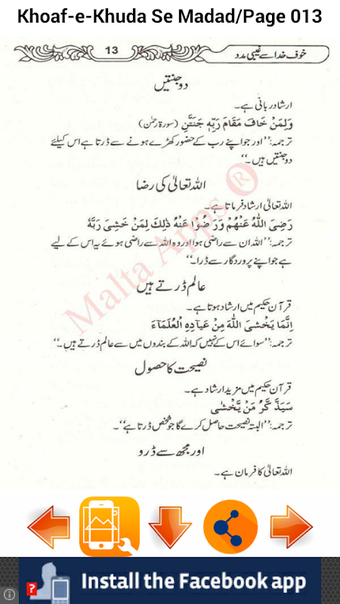 Khoaf-e-Khuda Se Madad/Page 013
13
خوف خدا سے غیبی مدد
دو جنتیں
ارشاد ربانی ہے۔
وَلِمَنْ خَافَ مَقَامَ رَبِّهٖ جَنَّتٰنِ (سورۃ رحمٰن)
ترجمہ: ’’اور جو اپنے رب کے حضور کھڑے ہونے سے ڈرتا ہے اس کیلئے
دو جنتیں ہیں۔‘‘
اللہ تعالیٰ کی رضا
اللہ تعالیٰ ارشاد فرماتا ہے۔
رَضِیَ اللّٰهُ عَنْهُمْ وَرَضُوْا عَنْهُ ذٰلِكَ لِمَنْ خَشِیَ رَبَّهٗ
ترجمہ: ’’اللہ ان سے راضی ہوا اور وہ اللہ سے راضی ہوئے یہ اس کے لیے
ہے جو اپنے پروردگار سے ڈرا۔‘‘
عالم ڈرتے ہیں
قرآن حکیم میں ارشاد ہوتا ہے۔
اِنَّمَا یَخْشَی اللّٰهَ مِنْ عِبَادِهِ الْعُلَمَآءُ
ترجمہ: ’’سوائے اس کے نہیں کہ اللہ کے بندوں میں سے عالم ڈرتے ہیں۔‘‘
نصیحت کا حصول
قرآن حکیم میں مزید ارشاد ہے۔
سَیَذَّكَّرُ مَنْ یَّخْشٰی
ترجمہ: ’’البتہ نصیحت حاصل کرے گا جو شخص ڈرتا ہے‘‘۔
اور مجھ سے ڈرو
اللہ تعالیٰ کا فرمان ہے۔
Malta Apps ®
Install the Facebook app